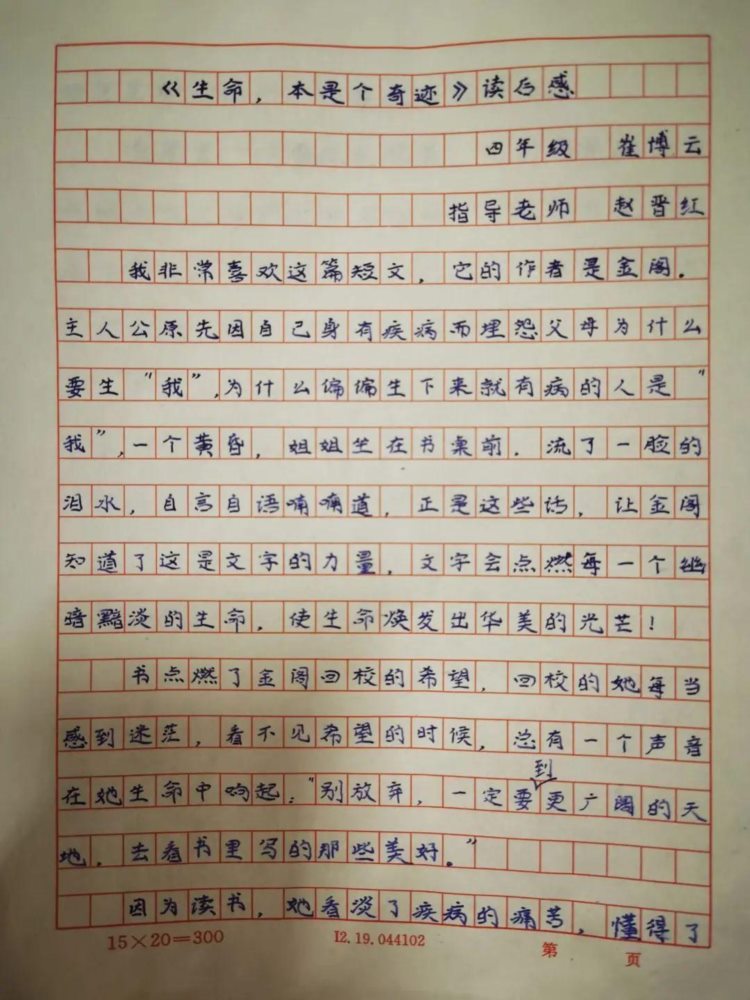 《生命，本是个奇迹》读后感
四年级 崔博云
指导老师 赵晋红
我非常喜欢这篇短文，它的作者是金阁.
主人公原先因自己身有疾病而埋怨父母为什么
要生“我”,为什么偏偏生下来就有病的人是“
我”,一个黄昏，姐姐坐在书桌前.流了一脸的
泪水，自言自语喃喃道，正是这些话，让金阁
知道了这是文字的力量，文字会点燃每一个幽
暗黯淡的生命，使生命焕发出华美的光芒！
书点燃了金阁回校的希望，回校的她每当
感到迷茫，看不见希望的时候，总有一个声音
在她生命中响起：“别放弃，一定要到更广阔的天
地，去看书里写的那些美好。”
因为读书，她看淡了疾病的痛苦，懂得了
15×20=300 12.19.044102 第 页